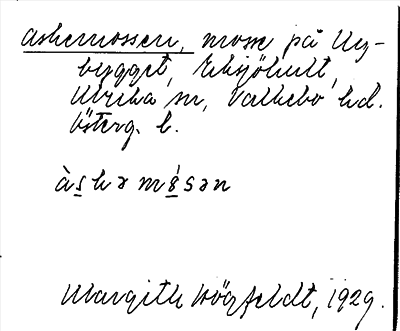 Askemossen, mosse på Ny-
bygget, Eksjöhult,
Ulrika sn, Valkebo hd.
Österg. l.
àskəmósən
Margith Högfeldt, 1929.